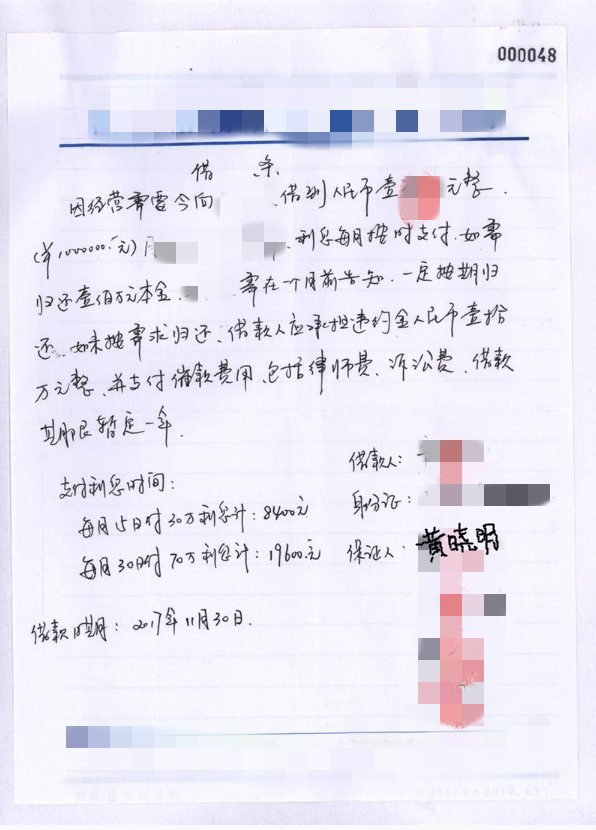 000048
借 条
因经营需要今向 借到人民币壹 元整.
(¥1000000.元) 利息每月按时支付.如需
归还壹佰万元本金. 需在一个月前告知.一定按期归
还.如未按需求归还.借款人应承担违约金人民币壹拾
万元整.并支付催款费用.包括律师费、诉讼费、借款
期限暂定一年.
借款人:
支付利息时间:
身份证:
每月5日付30万利息计:8400元
保证人: 黄晓明
每月30日付70万利息计:19600元
借款日期:2017年11月30日.